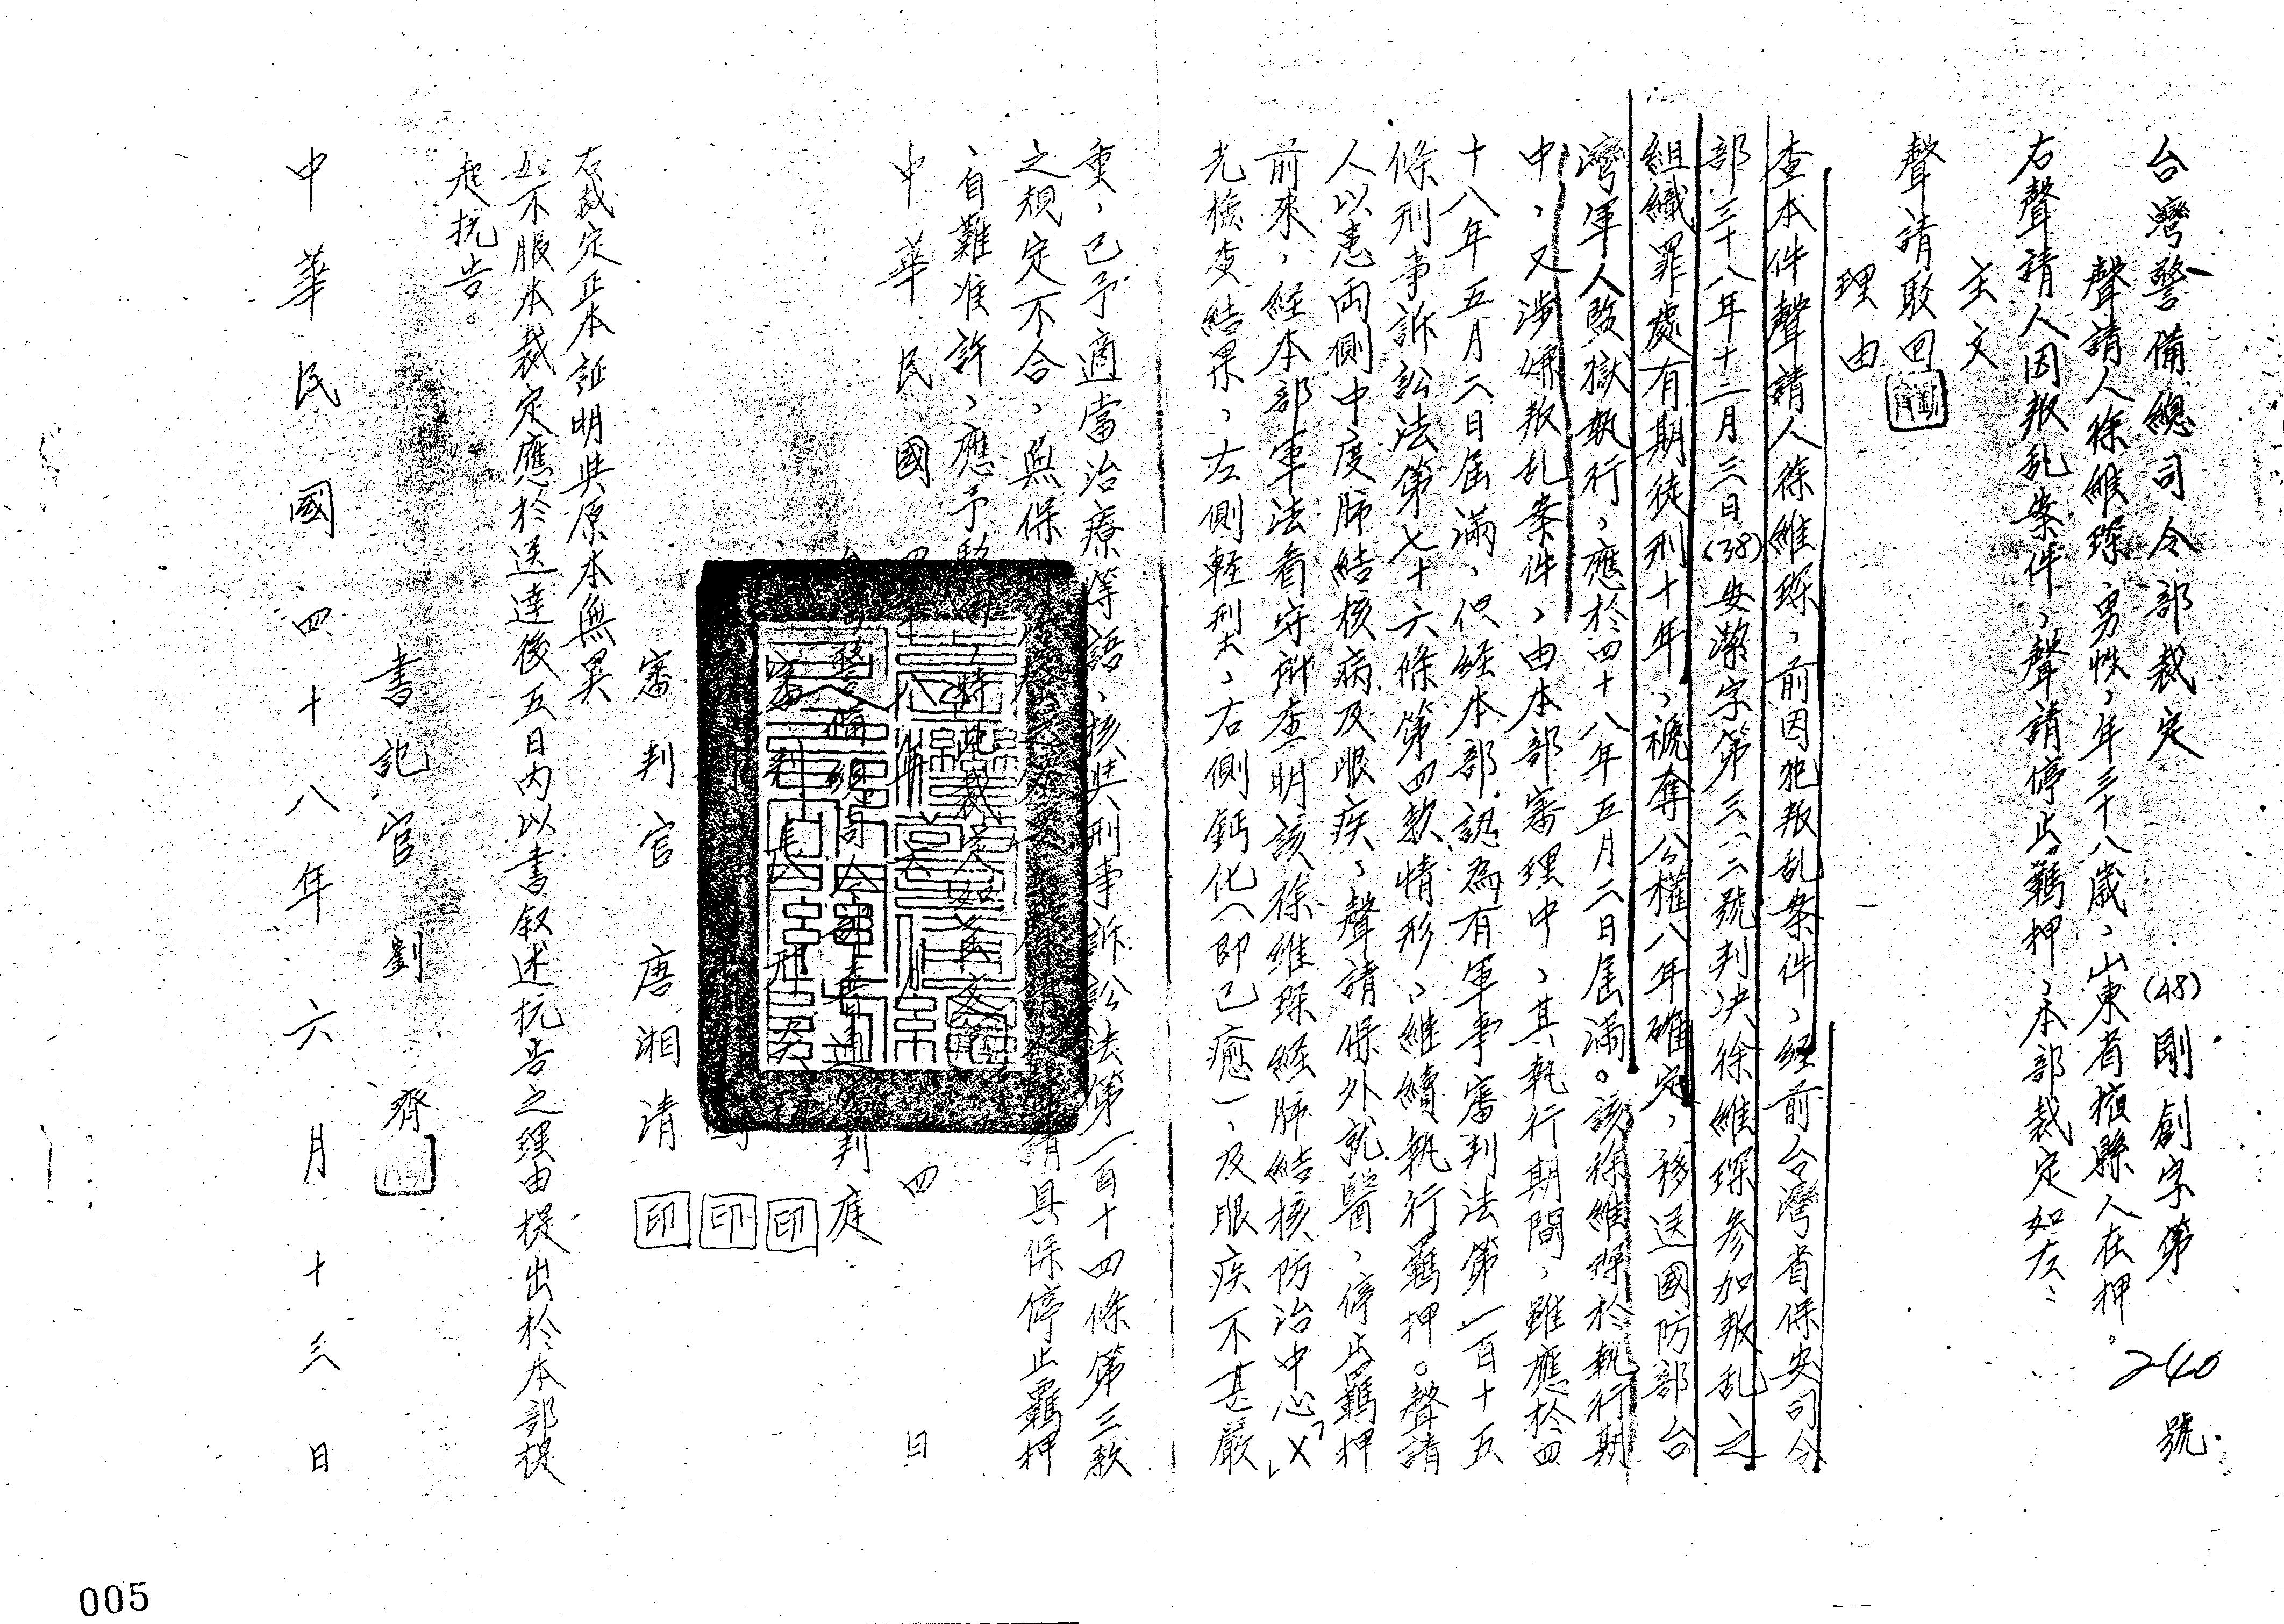 台灣警備總司令部裁定　(48)剛創字第240號
聲請人徐維琛，男性，年三十八歲，山東省掖縣人在押。
右聲請人因叛乱案件，聲請停止羈押，本部裁定如左：
主文
聲請駁回
理由
查本件聲請人徐維琛，前因犯叛乱案件，經前台灣省保安司令
部三十八年十二月三日(38)安潔字第三二號判决徐維琛参加叛乱之
組織罪處有期徒刑十年，褫奪公權八年確定，移送國防部台
灣軍人監獄執行，應於四十八年五月二日屆滿。該徐維琛於執行期
中，又涉嫌叛乱案件，由本部審理中，其執行期間，雖應於四
十八年五月二日屆滿，但経本部認為有軍事審判法第一百十五
條刑事訴訟法第七十六條第四款情形，継續執行羈押。聲請
人以患両側中度肺結核病及眼疾，聲請保外就醫，停止羈押
前來，経本部軍法看守所查明該徐維琛経肺結核防治中心X
光檢查結果，左側軽型，右側鈣化(即已癒)，及眼疾不甚嚴
重，已予適當治療等語，核與刑事訴訟法第一百十四條第三款
之規定不合，無保 請具保停止羈押
，自難准許，應予駁回，特此裁定如主文
中華民國四十八年六月四日
警備總司令部普通審判庭
審判長
審判官唐湘清
印
印
印
右裁定正本証明與原本無異
如不服本裁定應於送達後五日内以書叙述抗告之理由提出於本部提
起抗告。
書記官劉　齊
中華民國四十八年六月十三日
005